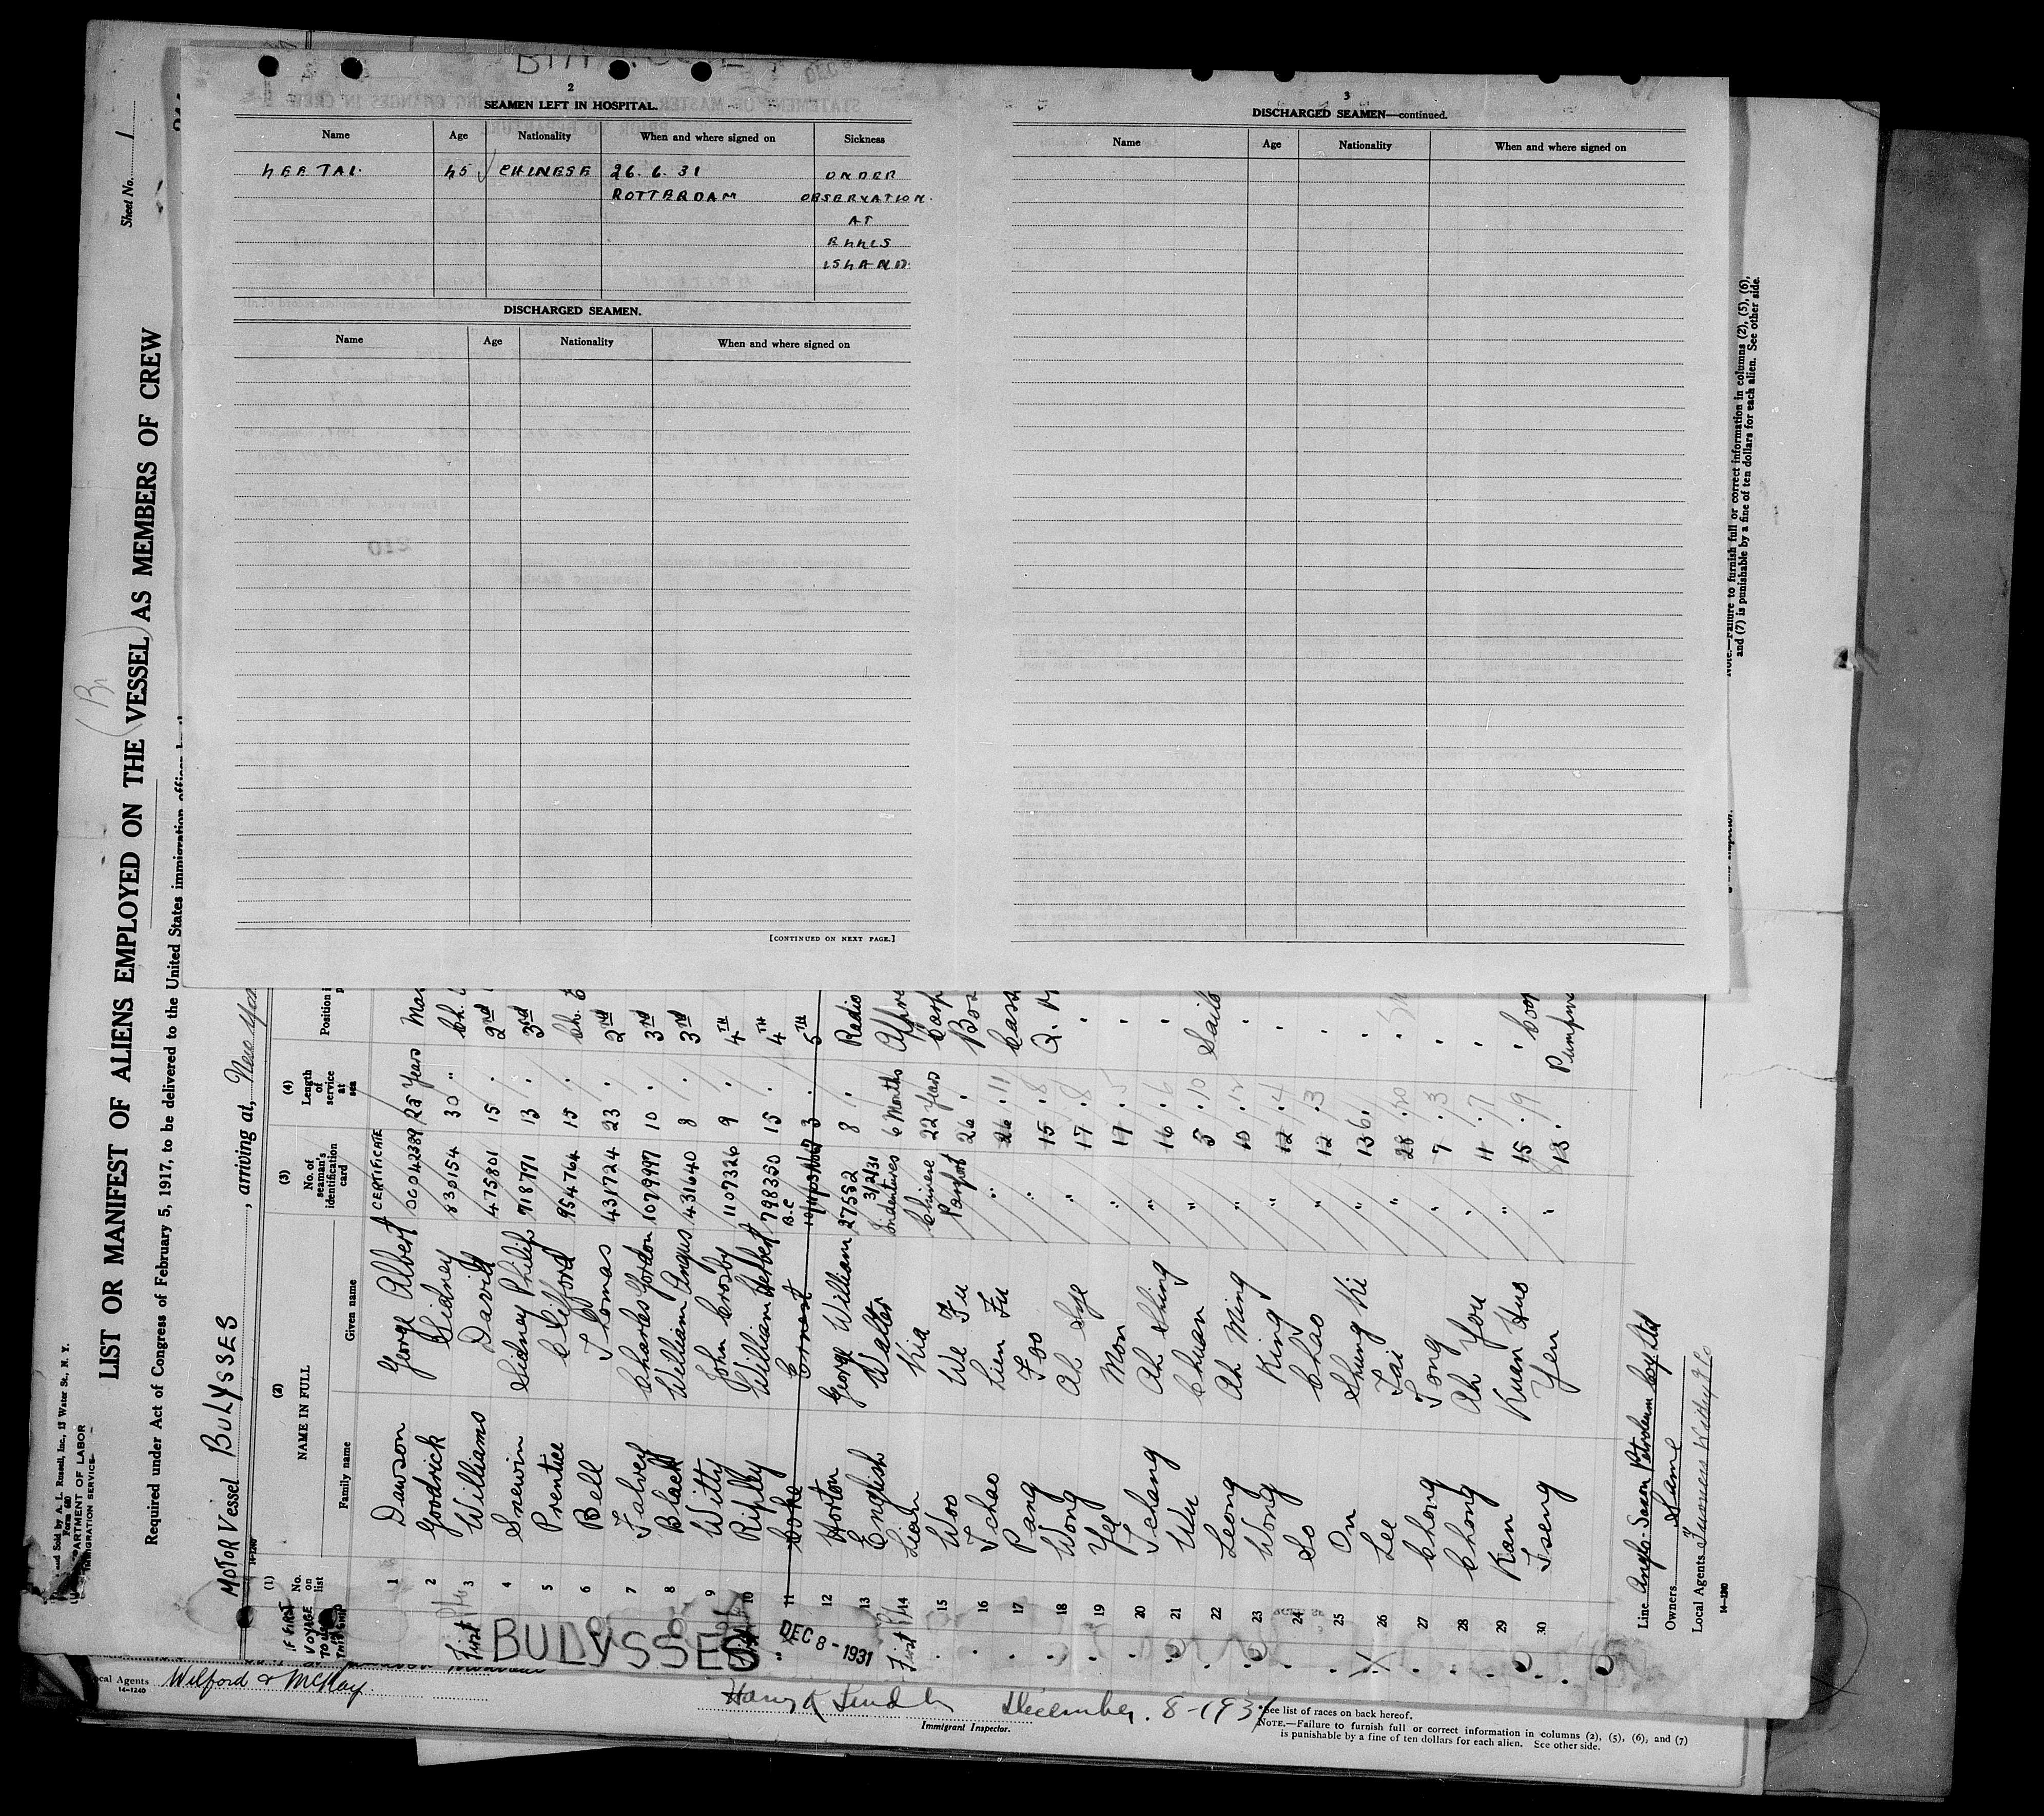 2
SEAMEN LEFT IN HOSPITAL.
Name Age Nationality When and where signed on Sickness
LEE TAI. 45 CHINESE 26. 6. 31 UNDER
ROTTERDAM OBSERVATION.
AT
ELLIS
ISLAND.
DISCHARGED SEAMEN.
Name Age Nationality When and where signed on
[CONTINUED ON NEXT PAGE.]
3
DISCHARGED SEAMEN—continued.
Name Age Nationality When and where signed on
Sheet No. 1
and Sold by A. L. Russell, Inc., 13 Water St., N. Y.
Form 680
DEPARTMENT OF LABOR
IMMIGRATION SERVICE
(Br)
LIST OR MANIFEST OF ALIENS EMPLOYED ON THE VESSEL AS MEMBERS OF CREW
Required under Act of Congress of February 5, 1917, to be delivered to the United States immigration officer
MOTOR Vessel BULYSSES, arriving at, New York
14-1240
IF FIRST VOYAGE TO U.S. THIS SHIP
(1) No. on list
(2) NAME IN FULL
Family name Given name
(3) No. of seaman's identification card
(4) Length of service at sea
Position
CERTIFICATE
1 Dawson George Albert 0004239 25 Years
2 Goodrick Sidney 830154 30 " Ch.
3 Williams David 475801 15 . 2nd
4 Snewin Sidney Philip 718771 13 . 3rd
5 Prentice Clifford 954764 15 . Ch.
6 Bell Thomas 431724 23 . 2nd
7 Talvey Charles Gordon 1079997 10 . 3rd
8 Black William Angus 431640 8 . 3rd
9 Witty John Crosby 1107326 9 . 4TH
10 Ripley William Herbert 798350 15 . 4TH
11 Coke Ernest B.C. 3 . 5TH
12 Horton George William 27552 8 . Radio
13 English Walter Indentures 3/2/31 6 Months
14 Lian Kia Chinese Passport 22 Years
15 Woo We Fu " 26 . Bos
16 Tchao Lien Fu " 26 . 11
17 Pang Foo " 15 . 8 Q. M
18 Wong Ah Sye " 17 . 8
19 Yee Mon " 17 . 5
20 Tchang Ah Shing " 16 . 6
21 Wu Chuan " 5 . 10 Sailo
22 Leong Ah Ming " 10 . 12
23 Wong King " 12 . 4
24 So Chao " 12 . 3
25 On Shung Ki " 13 6
26 Lee Tai " 28 . 20
27 Chong Tong " 7 . 3
28 Chong Ah You " 4 . 7
29 Kan Kuan Huo " 15 . 9
30 Tseng Yen " 13 . Pumpm
First
BULYSSES
DEC 8 - 1931
First
Line Anglo-Saxon Petroleum Coy Ltd
Owners Same
Local Agents Furness Withy & Co
14-1240
Note.—Failure to furnish full or correct information in columns (2), (5), (6),
and (7) is punishable by a fine of ten dollars for each alien. See other side.
Local Agents Wilford & McKay
14-1240
December. 8-1931
Immigrant Inspector.
*See list of races on back hereof.
NOTE.—Failure to furnish full or correct information in columns (2), (5), (6), and (7)
is punishable by a fine of ten dollars for each alien. See other side.